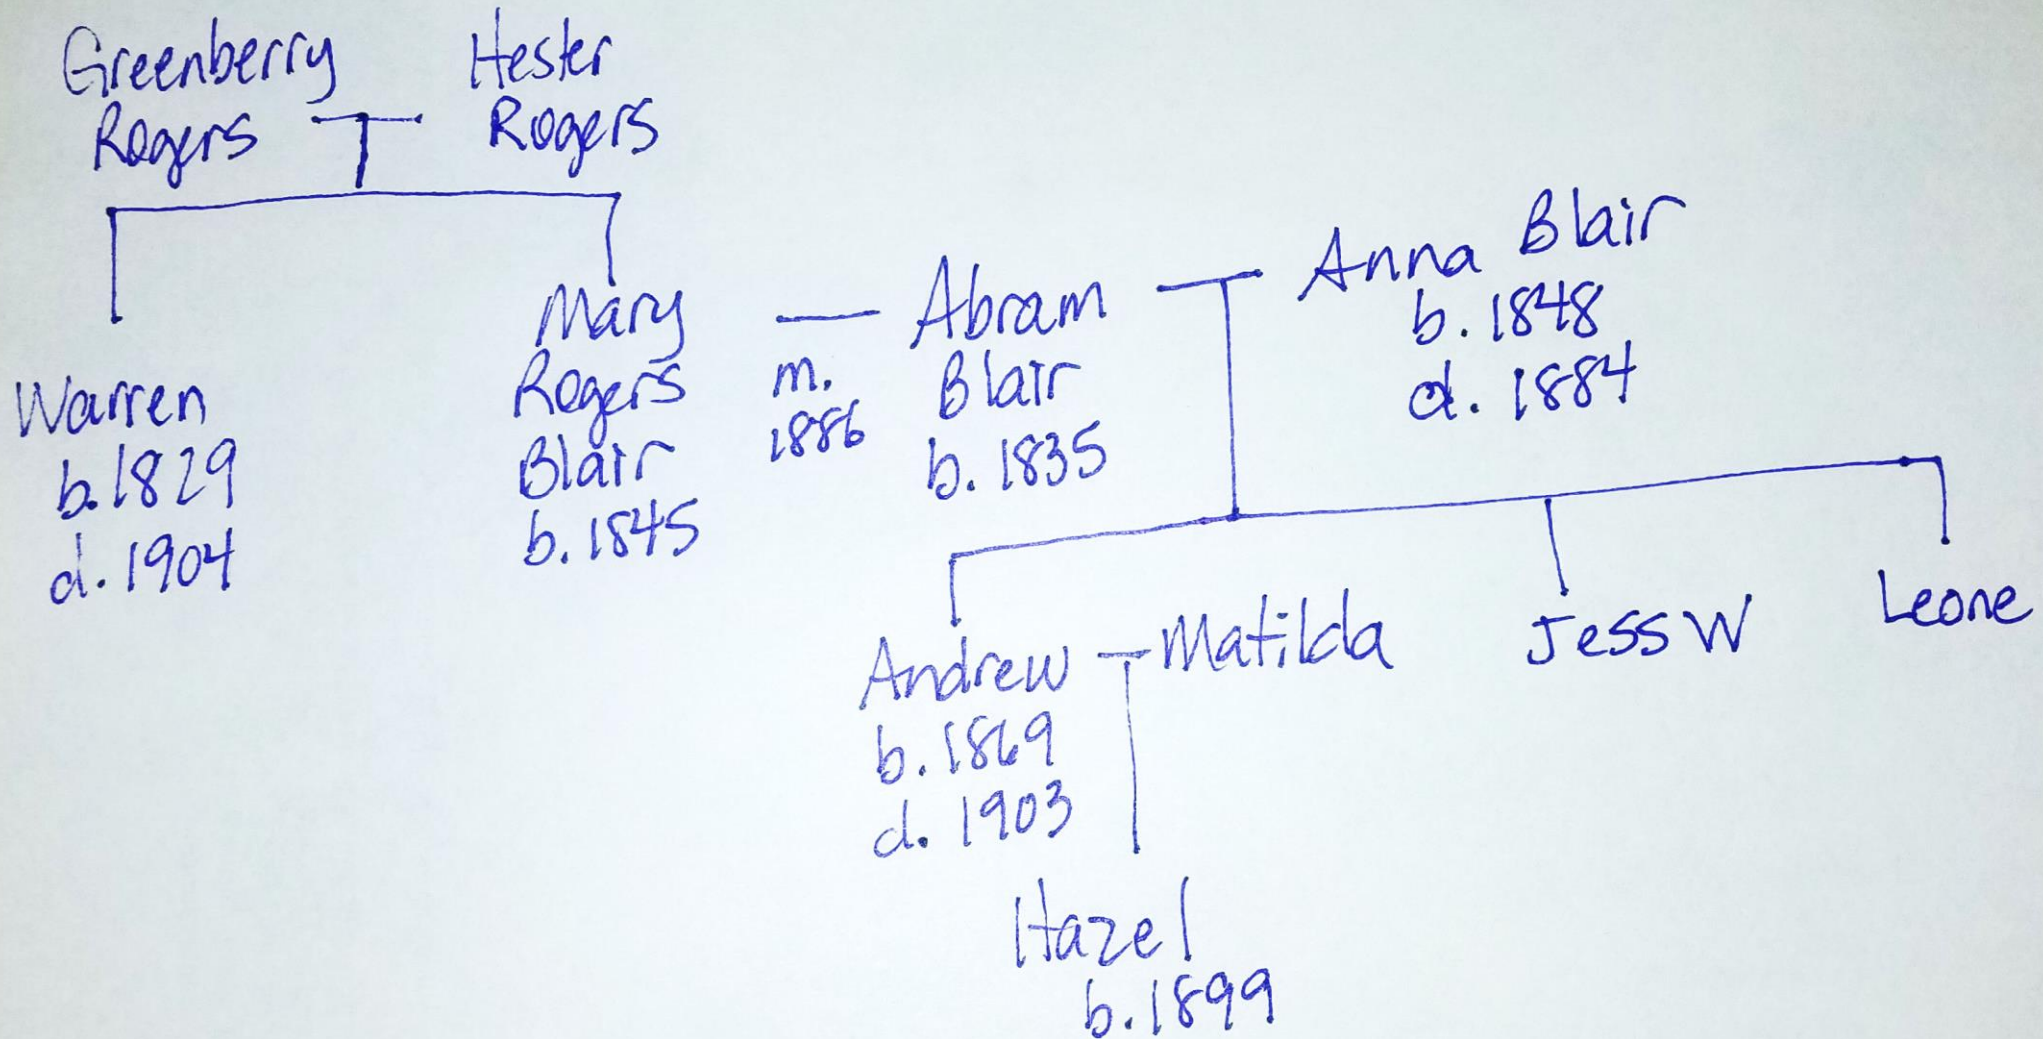 Greenberry
Rogers
Hester
Rogers
Warren
b. 1829
d. 1904
Mary
Rogers
Blair
b. 1845
m.
1886
Abram
Blair
b. 1835
Anna Blair
b. 1848
d. 1884
Andrew
b. 1869
d. 1903
Matilda
Jess W
Leone
Hazel
b. 1899